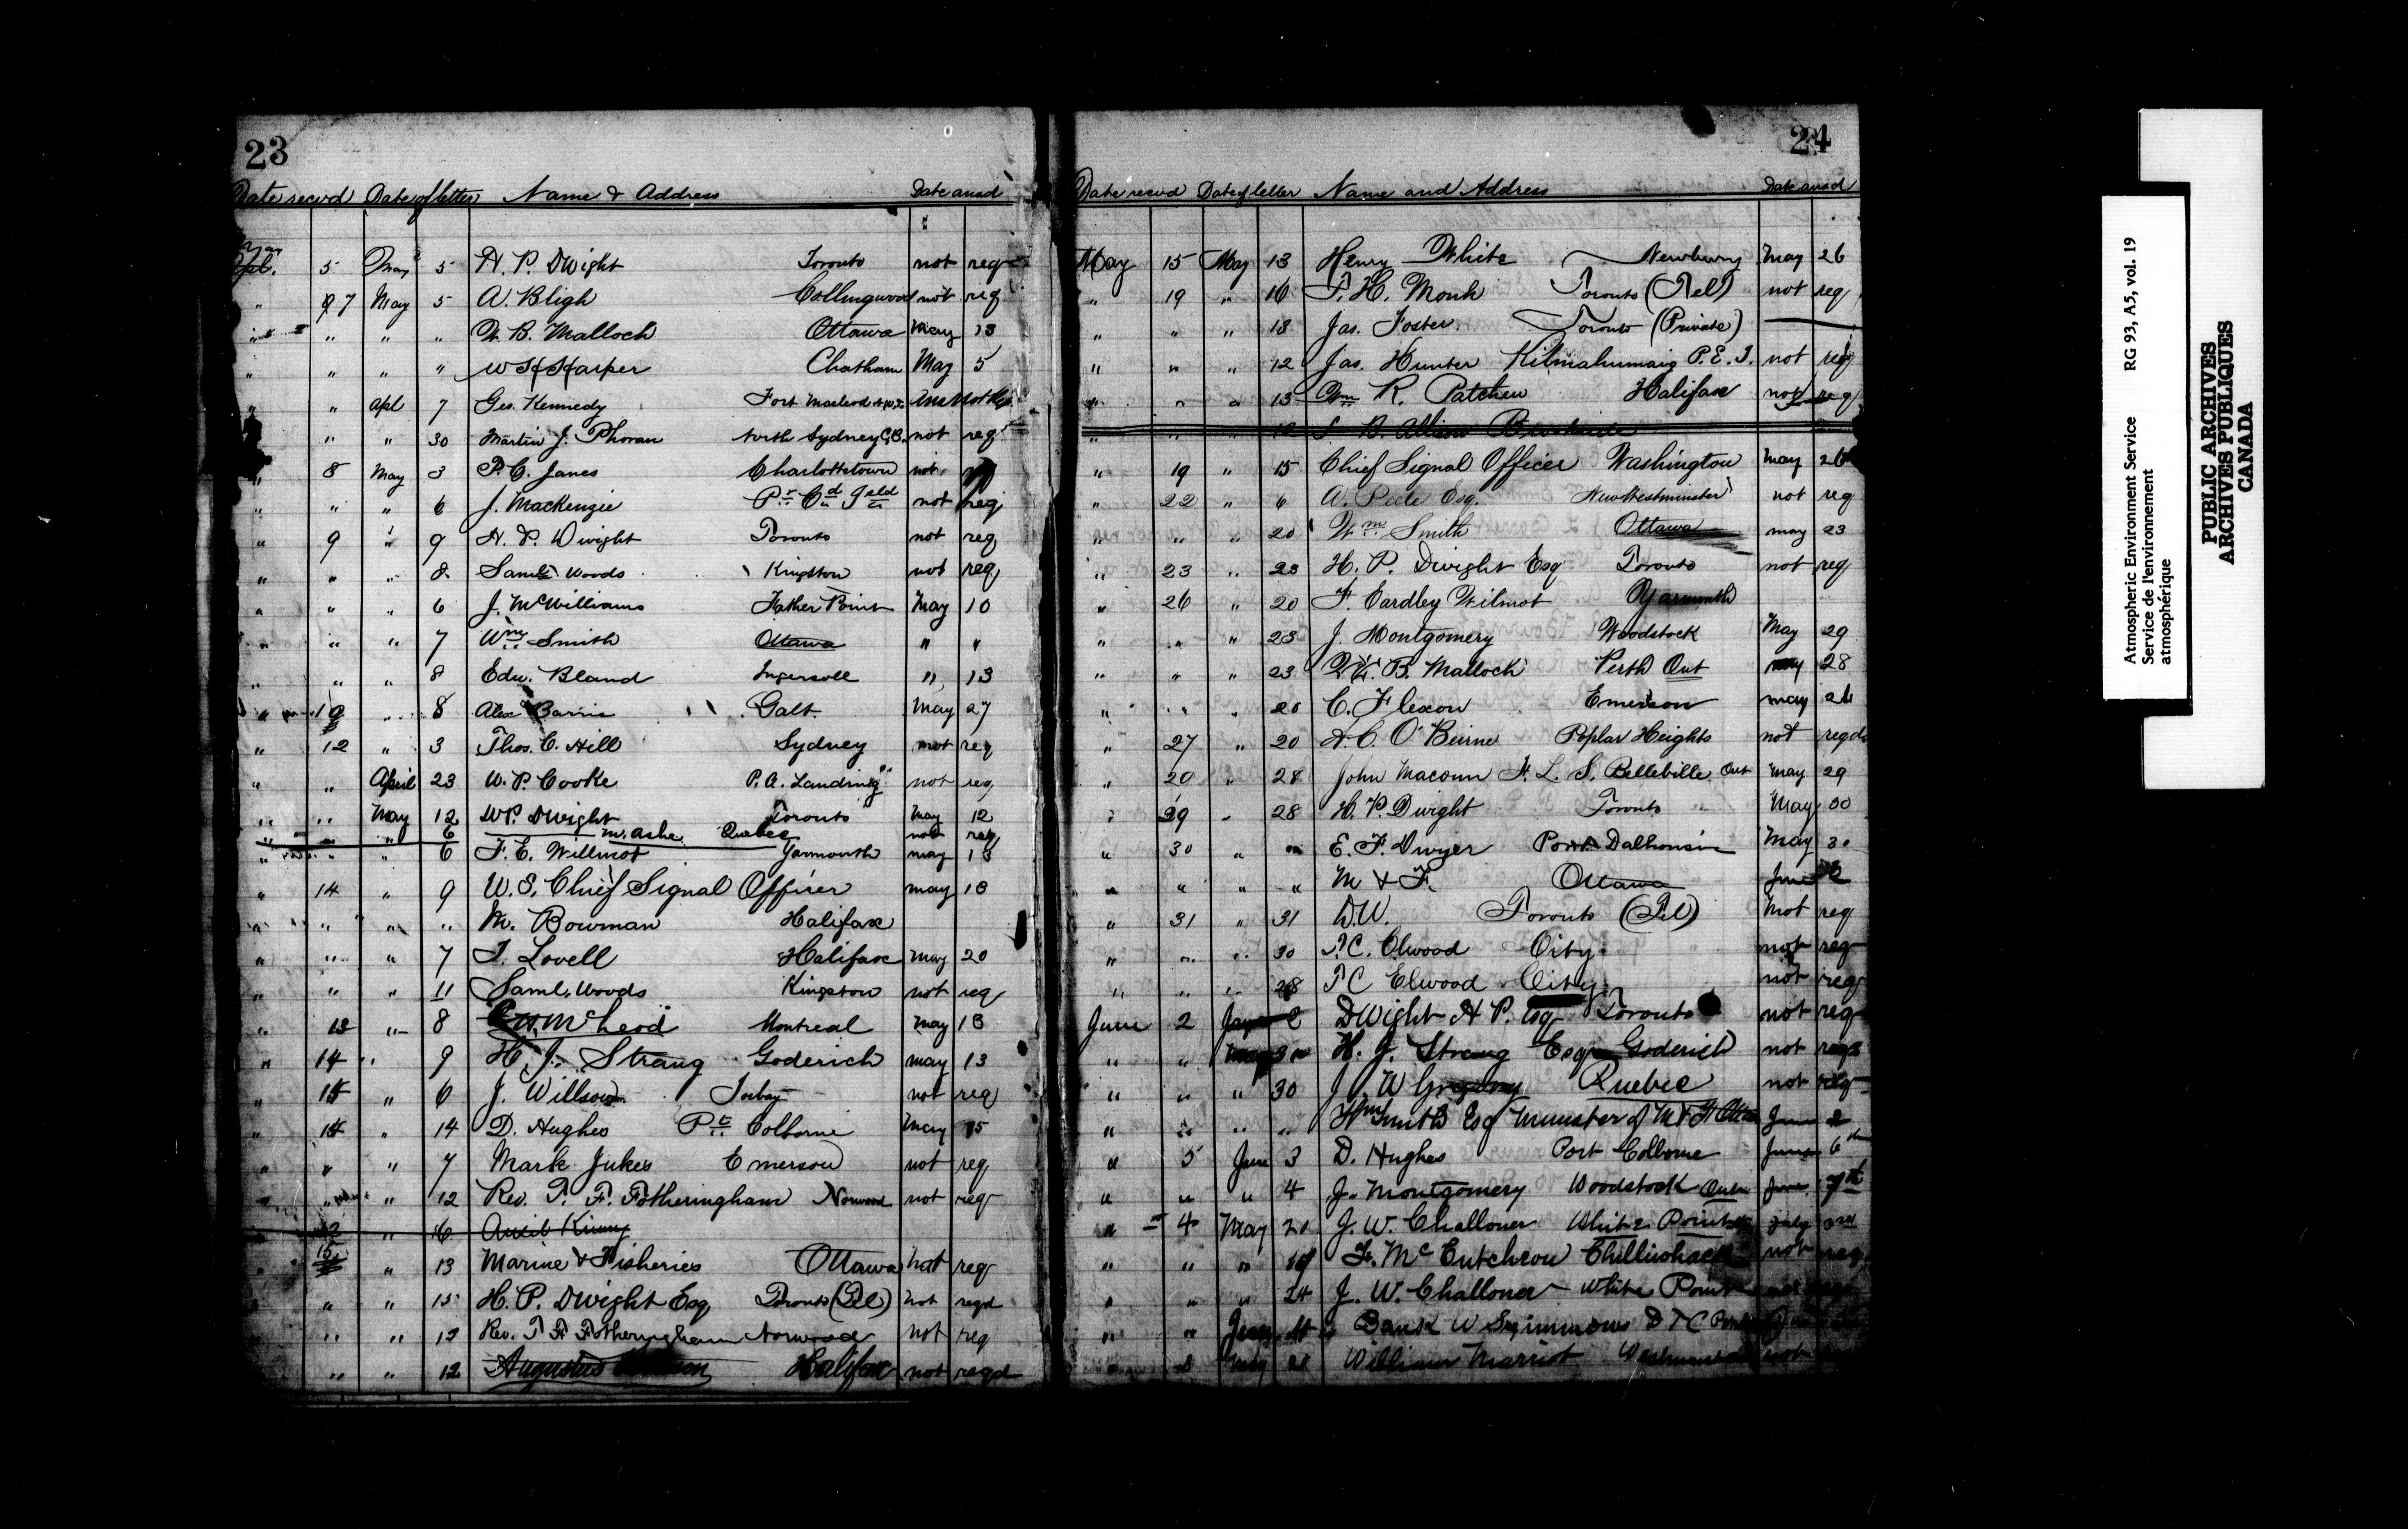 23
Date recvd Date of letter Name & Address Date ansd
May 5 May 5 H. P. Dwight Toronto not req
" 7 May 5 A. Bligh Collingwood not req
" " " " W. B. Malloch Ottawa May 13
" " " " W H Harper Chatham May 5
" " Apl 7 Geo. Kennedy Fort Macleod N.W.T. Ans not req
" " " 30 Martin J. Phoran North Sydney C.B. not req
" 8 May 3 P. C. Janes Charlottetown not
" " " 6 J. MacKenzie not req
" 9 " 9 H. P. Dwight Toronto not req
" " " 8 Saml Woods Kingston not req
" " " 6 J. McWilliams Father Point May 10
" " " 7 Wm Smith Ottawa " "
" " " 8 Edw. Bland Ingersoll " 13
" 10 " 8 Alex Barrie Galt. May 27
" 12 " 3 Thos. C. Hill Sydney not req
" " April 23 W. P. Cooke P. A. Landing not req
" " May 12 W P. Dwight Toronto May 12
" " " 6 M. Ashe Quebec not req
" " " 6 F. E. Willmot Yarmouth may 13
" 14 " 9 U. S. Chief Signal Officer may 13
" " " " M. Bowman Halifax
" " " 7 T. Lovell Halifax May 20
" " " 11 Saml. Woods Kingston not req
" 13 " 8 McLeod Montreal May 13
" 14 " 9 H. J. Strang Goderich may 13
" 15 " 6 J. Willson Torbay not req
" 14 " 14 D. Hughes Pt Colborne May 15
" " " 7 Mark Jukes Emerson not req
" " " 12 Rev. T. F. Fotheringham Norwood not req
" 12 " 16
" 15 " 13 Marine & Fisheries Ottawa not req
" " " 15 H. P. Dwight Esq, Toronto (Tel) not reqd
" " " 12 Rev. T F Fotheringham Norwood not req
" " " 12 Augustus Halifax not reqd
24
Date recvd Date of letter Name and Address Date ansd
May 15 May 13 Henry White Newbury May 26
" 19 " 16 F. H. Monk Toronto (Tel) not req
" " " 18 Jas. Foster Toronto (Private)
" " " 12 Jas. Hunter Kilmahumaig P. E. I. not req
" " " 13 Wm R. Patchen Halifax not req
" " " S B. Allison
" 19 " 15 Chief Signal Officer Washington May 26
" 22 " 6 A. Peele Esq. New Westminster not req
" " " 20 Wm Smith Ottawa may 23
" 23 " 23 H. P. Dwight Esq Toronto not req
" 26 " 20 F. Eardley Wilmot Yarmouth
" " " 23 J. Montgomery Woodstock May 29
" " " 23 W. B. Mallock Perth Ont May 28
" " " 20 C. Flexon Emerson may 26
" 27 " 20 A. C. O'Beirne Poplar Heights not reqd
" 20 " 28 John Macoun F. L. S. Belleville Ont May 29
" 29 " 28 H. P. Dwight Toronto May 30
" 30 " " E. F. Dwyer Port Dalhousie May 30
" " " " M & F. Ottawa June 2
" 31 " 31 D.W. Toronto (Tel) not req
" " " 30 T. C. Elwood City not req
" " " 28 T C Elwood City not req
June 2 2 Dwight H P. Esq Toronto not req
" " May 30 H. J. Strang Esq Goderich not req
" " " 30 J. W Gregory Quebec not req
" " " " Wm Smith Esq Minister of M & F Ottawa June 2
" 5 June 3 D. Hughes Port Colborne June 6th
" " " 4 J. Montgomery Woodstock Ont June 7th
" 4 May 21 J. W. Challoner White Point July 3rd
" " " F. McCutcheon Chilliwhack not req
" " " 24 J. W. Challoner White Point
" " June W Simmons
" " May 21 William Marriot not
Atmospheric Environment Service RG 93, A5, vol. 19
Service de l'environnement
atmosphérique
PUBLIC ARCHIVES
ARCHIVES PUBLIQUES
CANADA